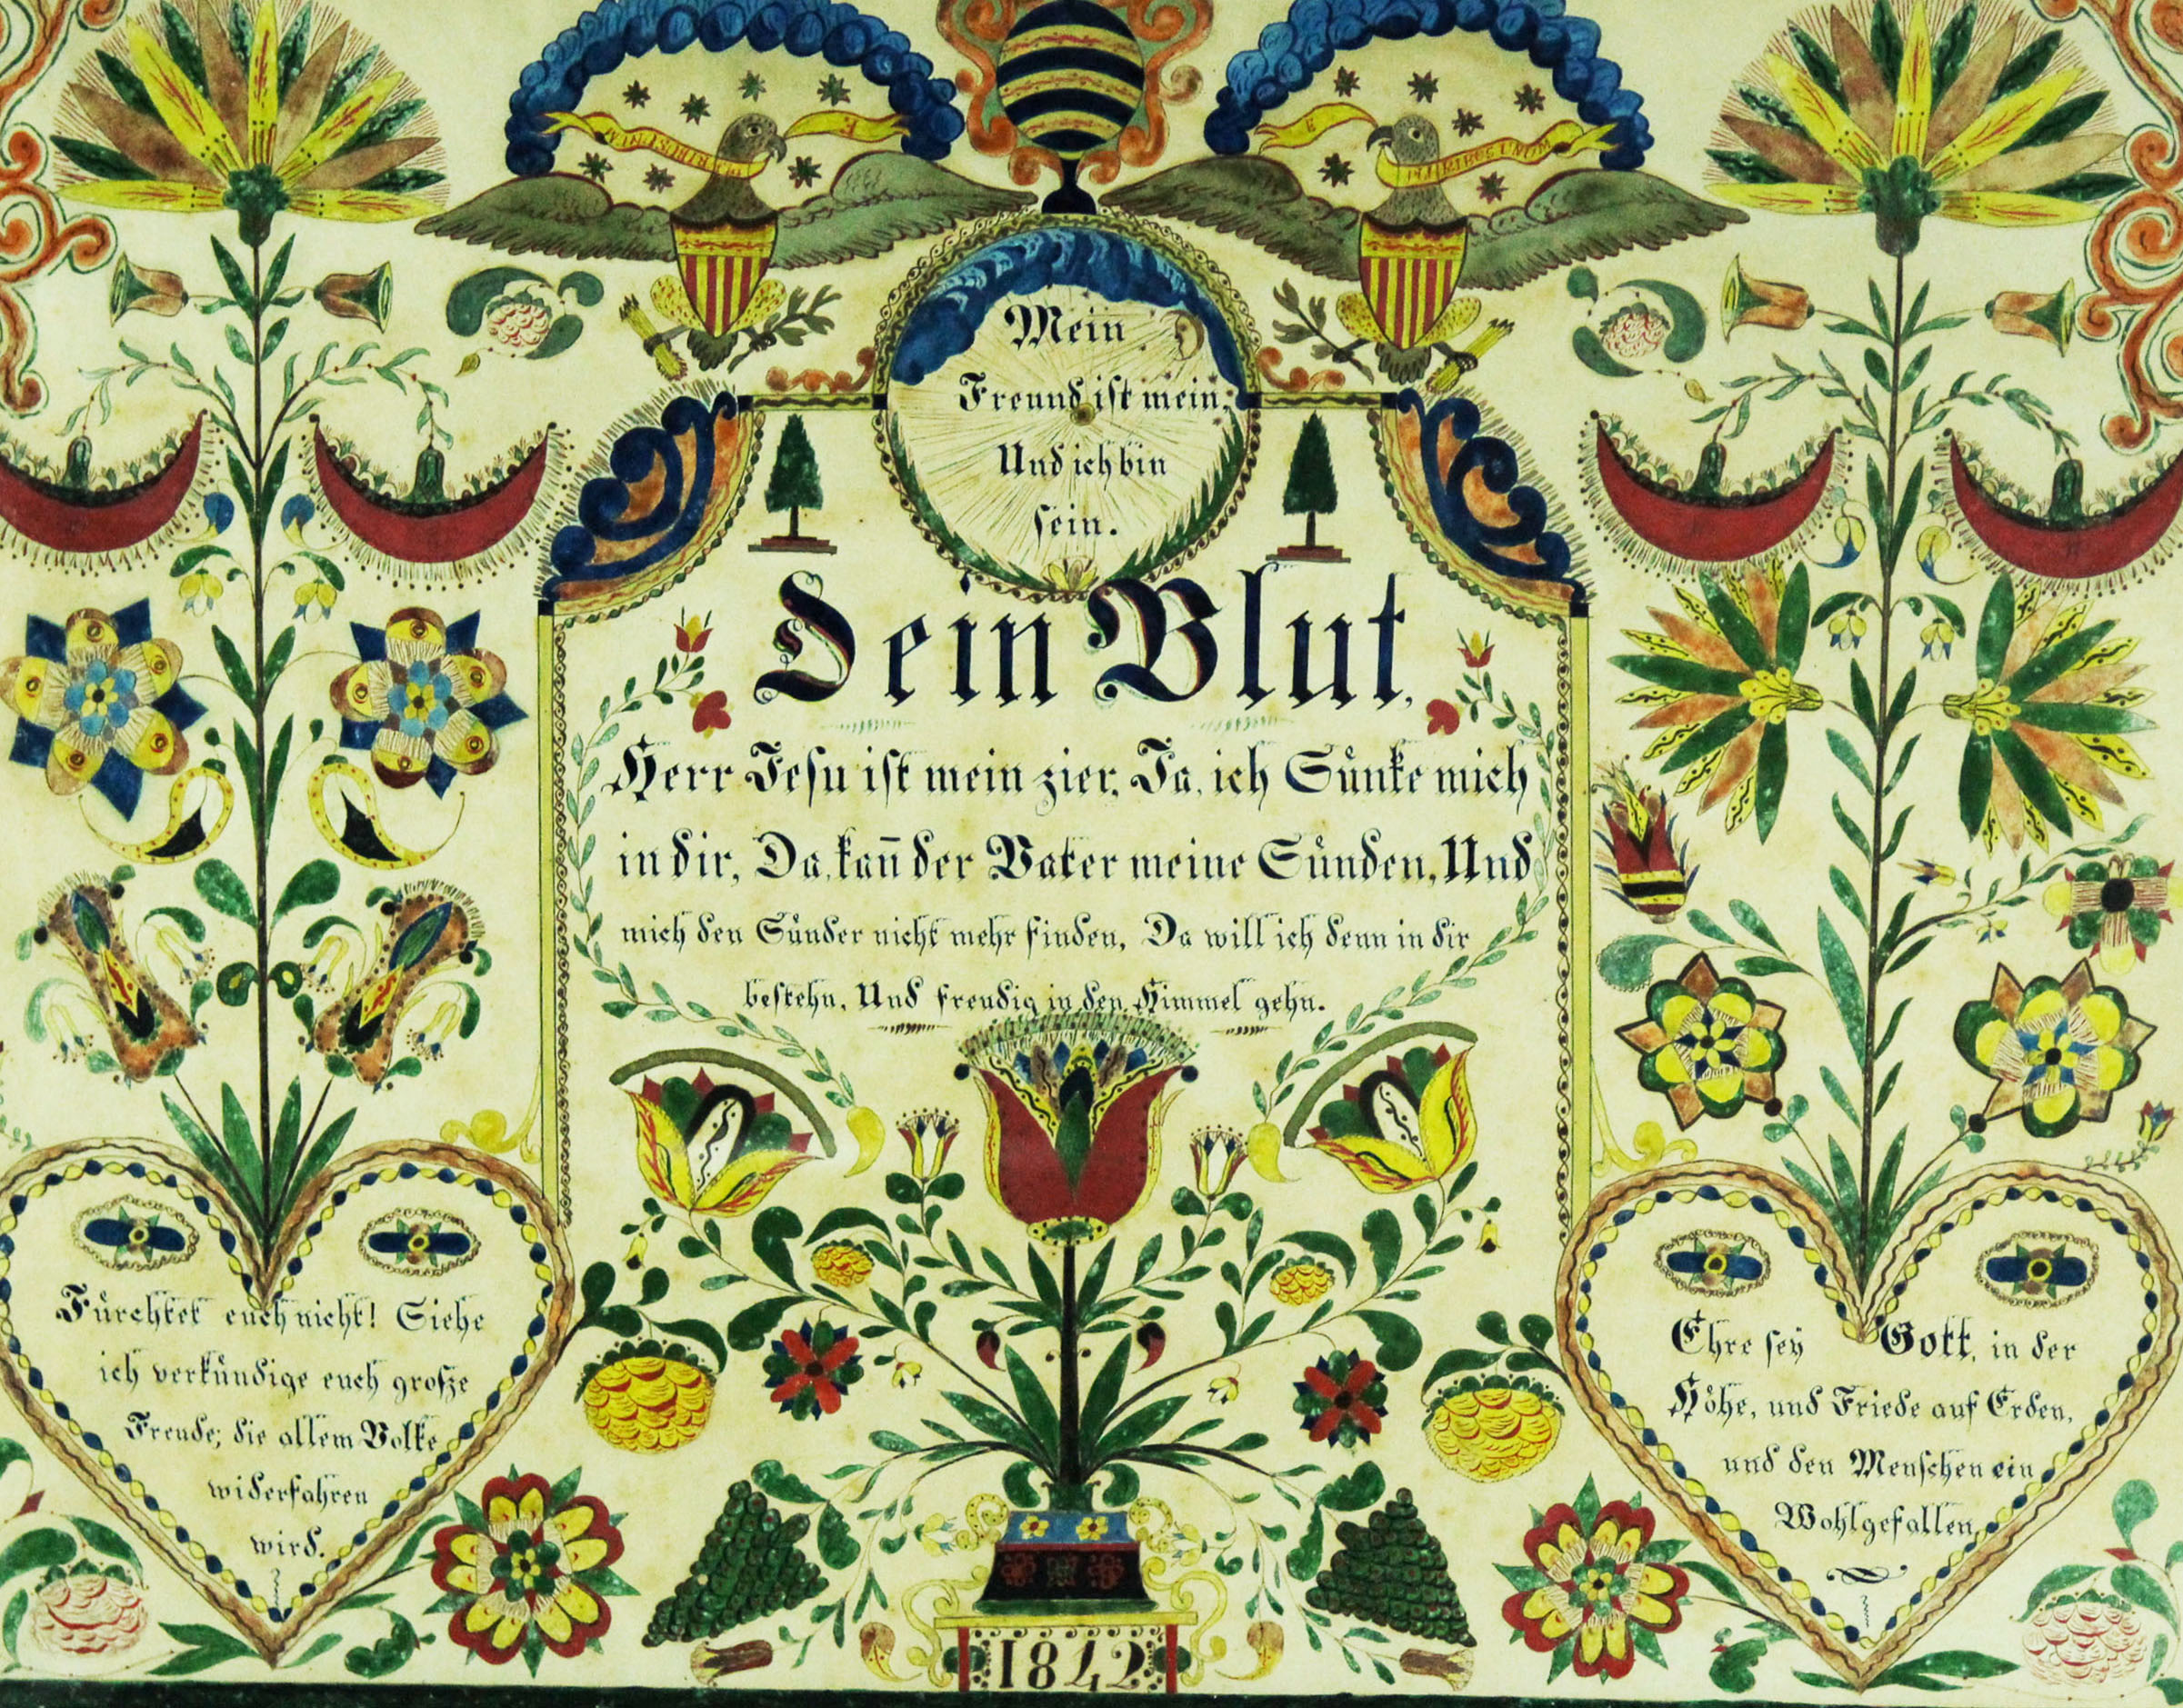 E PLURIBUS UNUM
E PLURIBUS UNUM
Mein
Freund ist mein,
Und ich bin
sein.
Dein Blut,
Herr Jesu ist mein zier, Ja, ich Sünke mich
in dir, Da, kan̄ der Vater meine Sünden, Und
mich den Sünder nicht mehr finden, Da will ich denn in dir
bestehn, Und freudig in den Himmel gehn.
Fürchtet euch nicht! Siehe
ich verkündige euch große
Freude; die allem Volke
widerfahren
wird.
Ehre sey Gott, in der
Höhe, und Friede auf Erden,
und den Menschen ein
Wohlgefallen,
1842